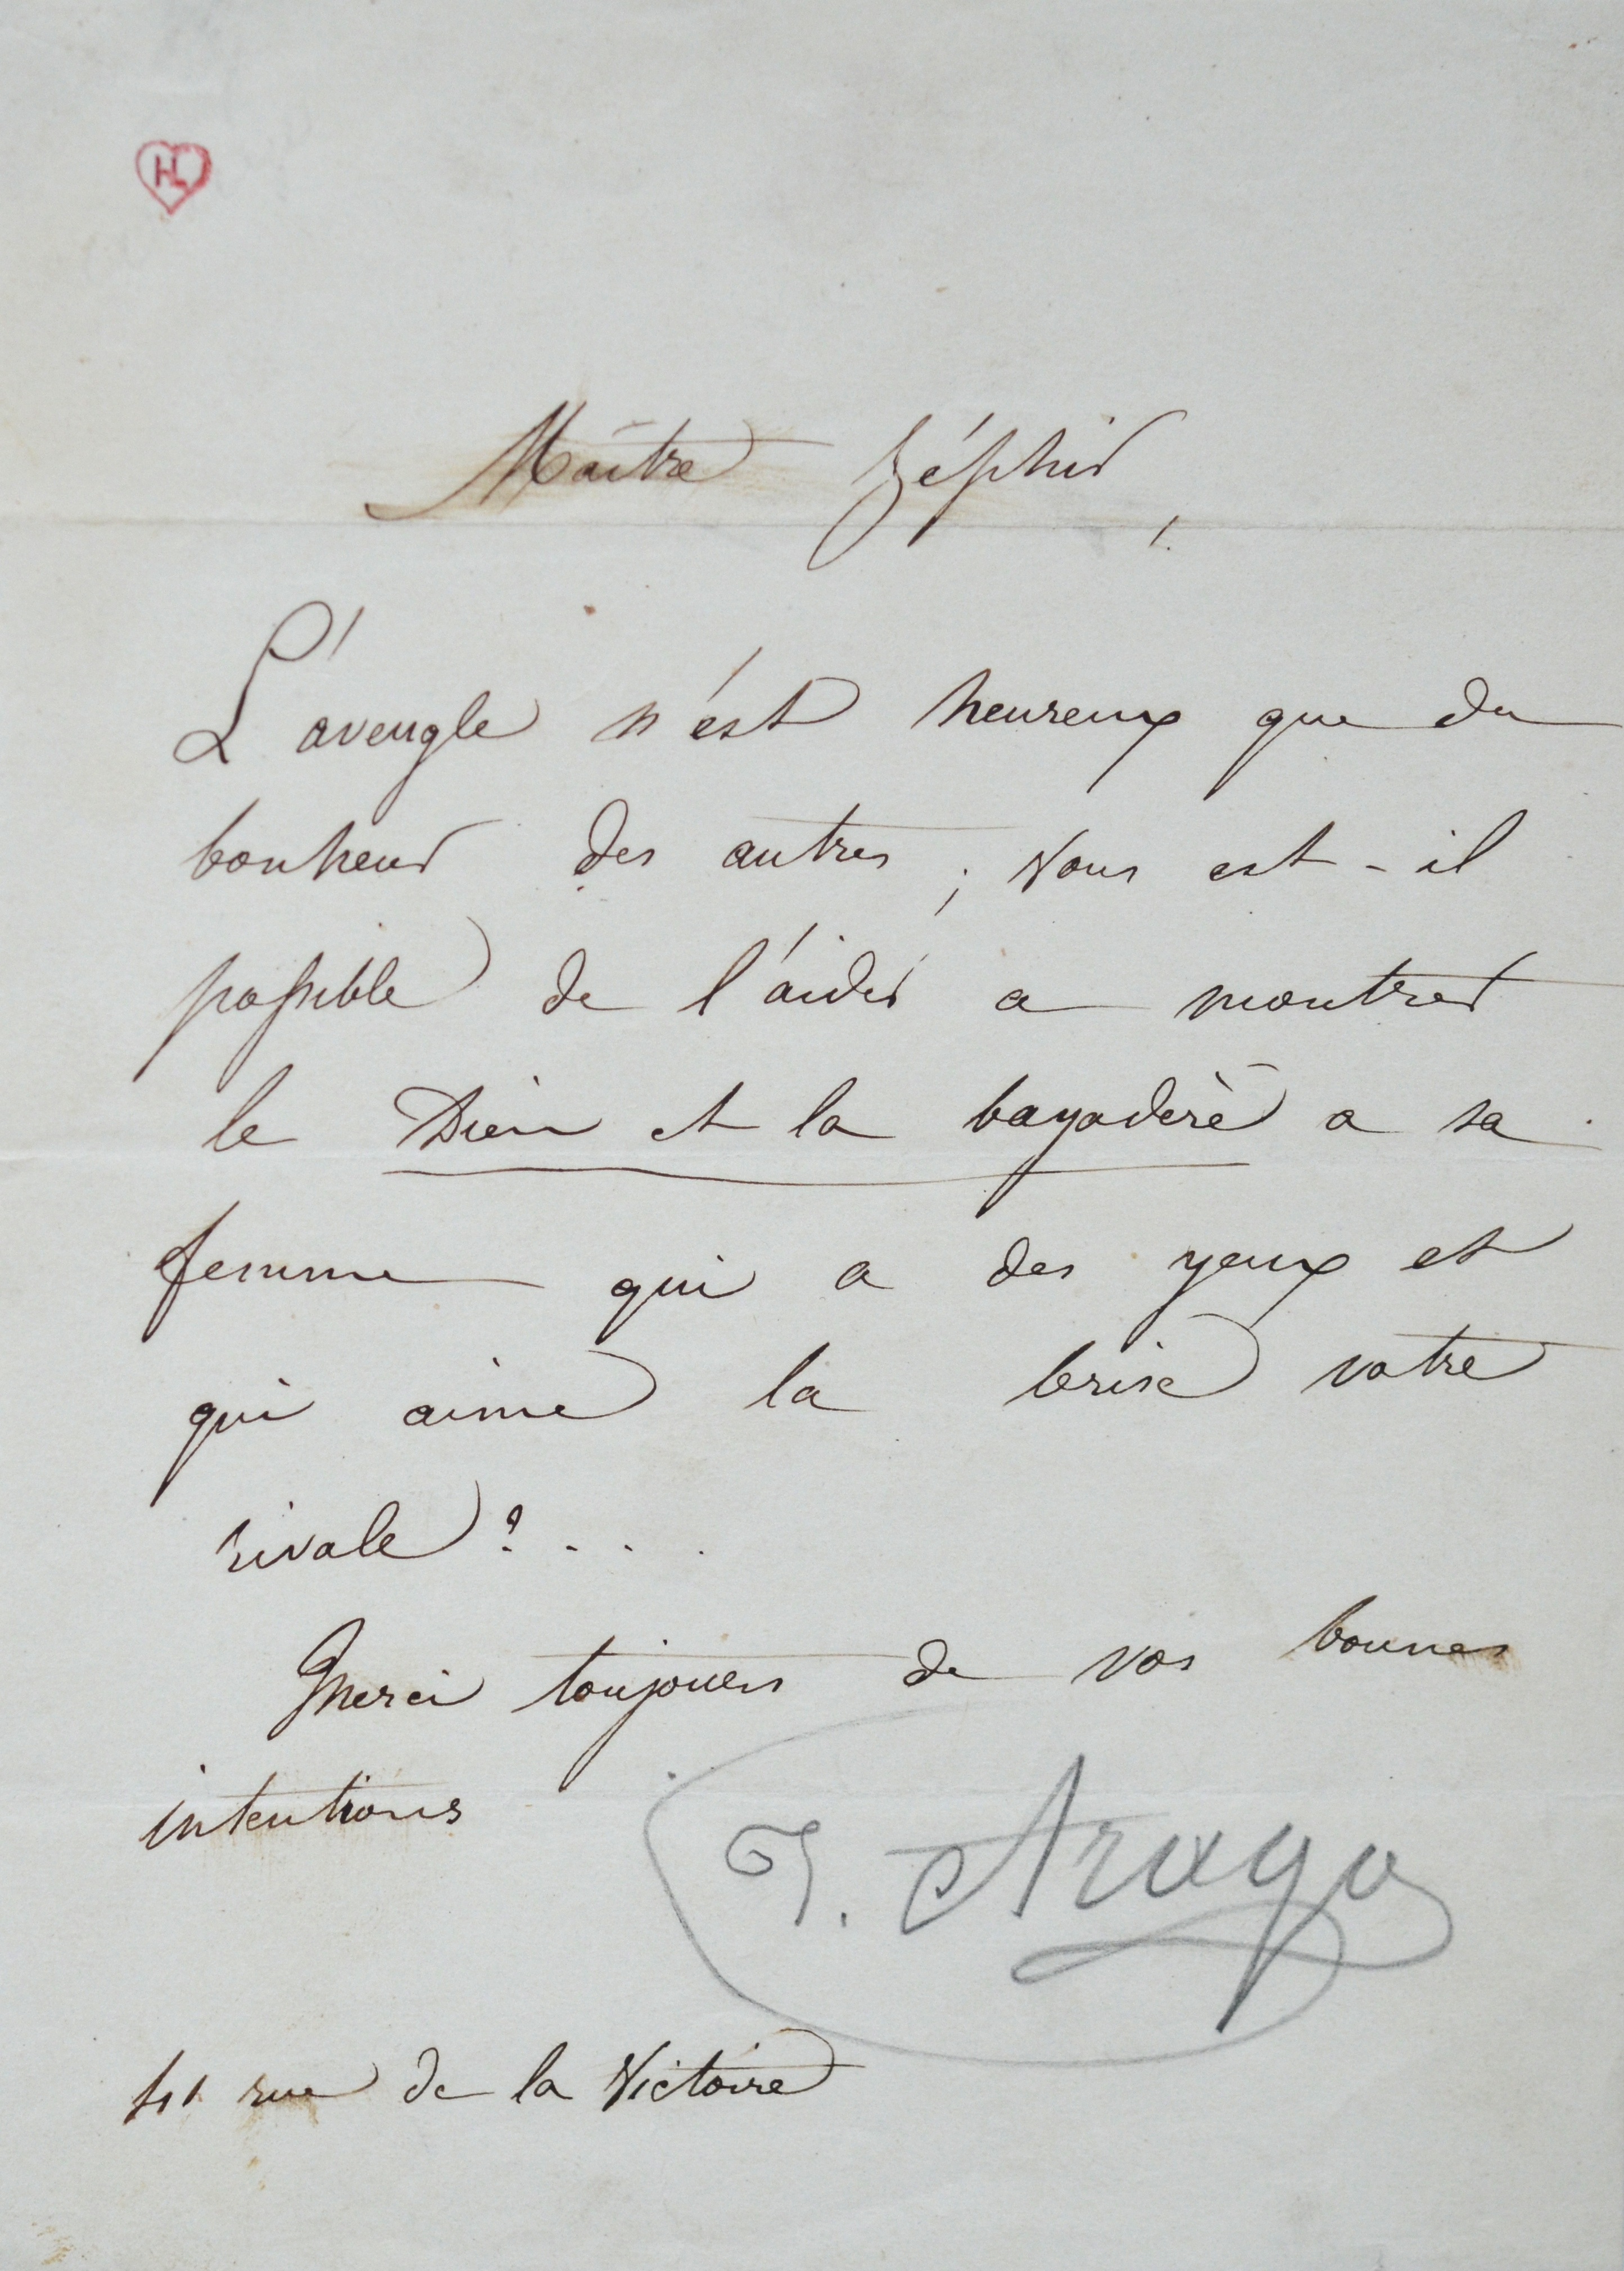 HL
Maître Zéphir,
L'aveugle n'est heureux que du
bonheur des autres ; Vous est-il
possible de l'aider a montrer
le Dieu et la bayadère a sa
femme qui a des yeux et
qui aime la brise votre
rivale ? . . .
Merci toujours de vos bonnes
intentions
J. Arago
41 rue de la Victoire